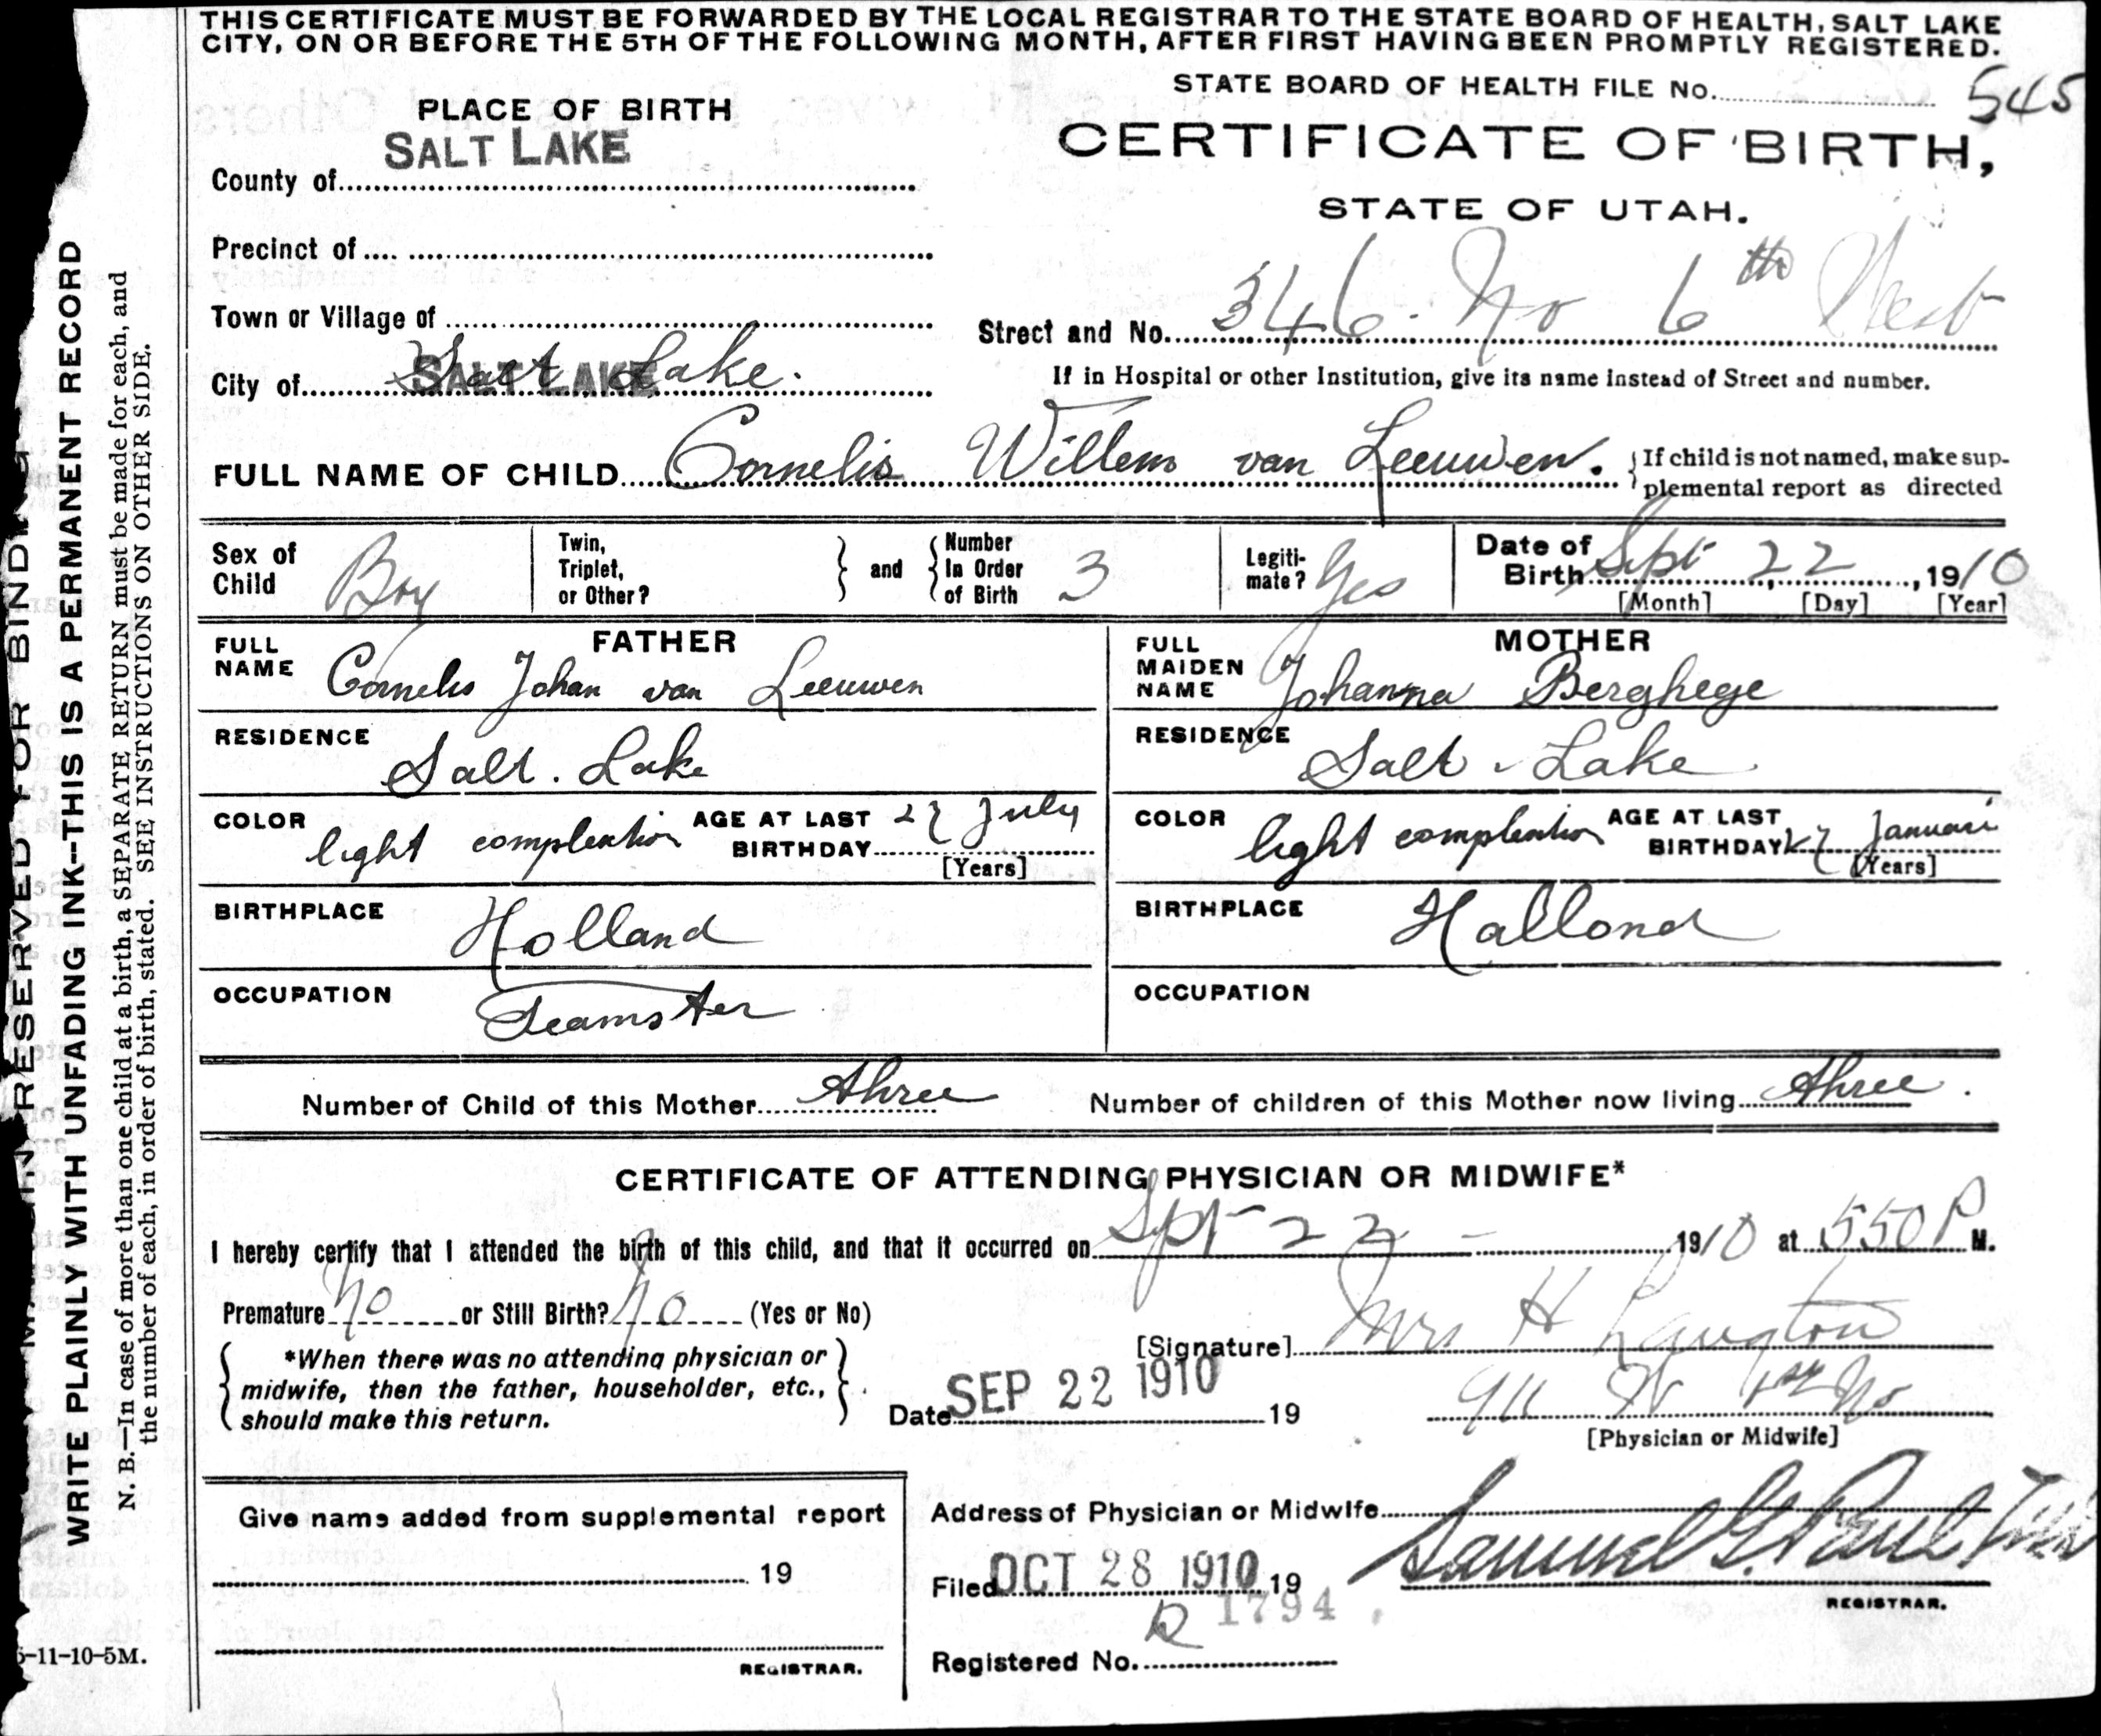 THIS CERTIFICATE MUST BE FORWARDED BY THE LOCAL REGISTRAR TO THE STATE BOARD OF HEALTH, SALT LAKE
CITY, ON OR BEFORE THE 5TH OF THE FOLLOWING MONTH, AFTER FIRST HAVING BEEN PROMPTLY REGISTERED.
STATE BOARD OF HEALTH FILE No. 545
PLACE OF BIRTH
CERTIFICATE OF BIRTH,
STATE OF UTAH.
County of SALT LAKE
Precinct of
Town or Village of
Street and No. 346 No 6th West
City of SALT LAKE Salt Lake.
If in Hospital or other Institution, give its name instead of Street and number.
FULL NAME OF CHILD Cornelis Willem van Leeuwen.
If child is not named, make sup-
plemental report as directed
Sex of Child Boy
Twin, Triplet, or Other? and Number In Order of Birth 3
Legiti-mate? Yes
Date of Birth Sept 22, 1910
[Month] [Day] [Year]
FATHER
FULL NAME Cornelis Johan van Leeuwen
RESIDENCE Salt. Lake
COLOR light complextion AGE AT LAST BIRTHDAY 27 July
[Years]
BIRTHPLACE Holland
OCCUPATION Teamster
MOTHER
FULL MAIDEN NAME Johanna Berghege
RESIDENCE Salt - Lake
COLOR light complextion AGE AT LAST BIRTHDAY 27 Januari
[Years]
BIRTHPLACE Hallond
OCCUPATION
Number of Child of this Mother Three
Number of children of this Mother now living Three.
CERTIFICATE OF ATTENDING PHYSICIAN OR MIDWIFE*
I hereby certify that I attended the birth of this child, and that it occurred on Spt 22 - 1910 at 550 P M.
Premature No or Still Birth? No (Yes or No)
*When there was no attending physician or
midwife, then the father, householder, etc.,
should make this return.
[Signature] Mrs H Langton
Date SEP 22 1910 19
911 W 1st No
[Physician or Midwife]
Give name added from supplemental report
19
REGISTRAR.
Address of Physician or Midwife
Filed OCT 28 1910 19
Samuel G. Paul
REGISTRAR.
R 1794
Registered No.
RESERVED FOR BINDING
WRITE PLAINLY WITH UNFADING INK--THIS IS A PERMANENT RECORD
N. B.—In case of more than one child at a birth, a SEPARATE RETURN must be made for each, and
the number of each, in order of birth, stated. SEE INSTRUCTIONS ON OTHER SIDE.
-11-10-5M.